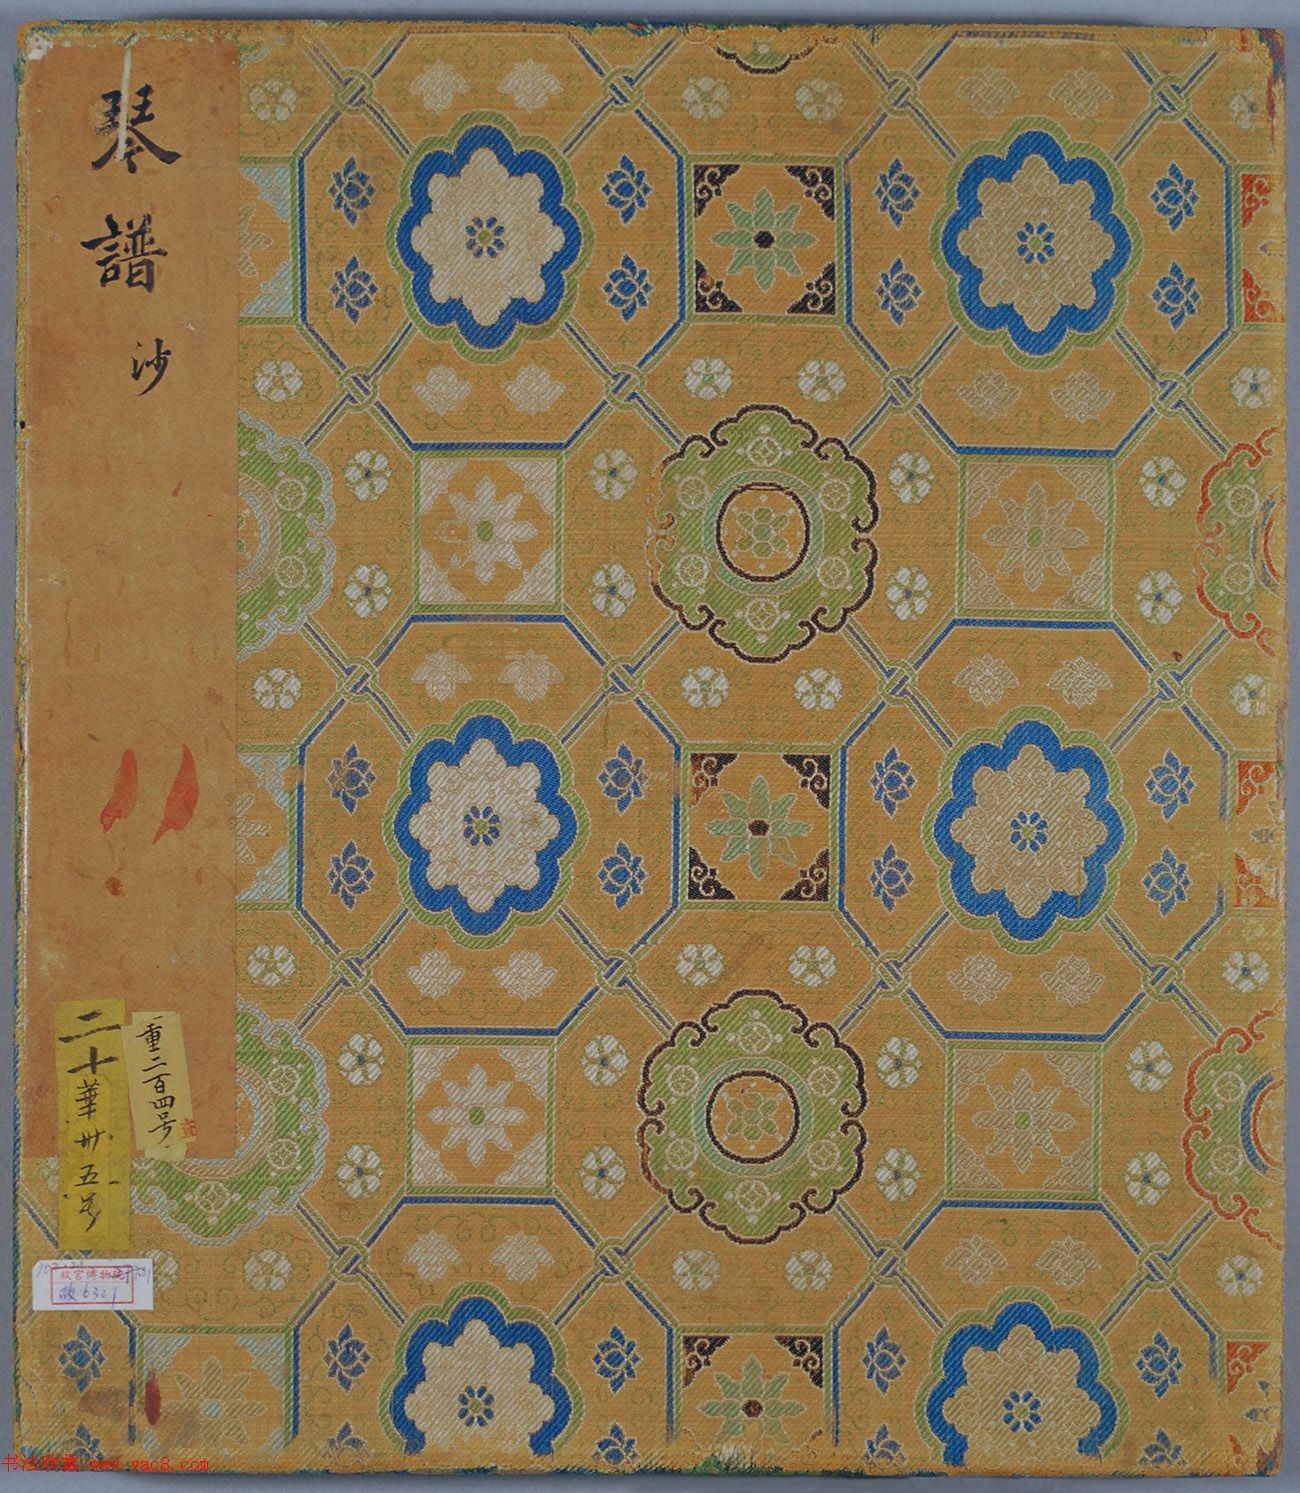 琴譜
沙
重二百四号
二十華卅五号
故宮博物院
故6321
书法欣赏 www.yac8.com